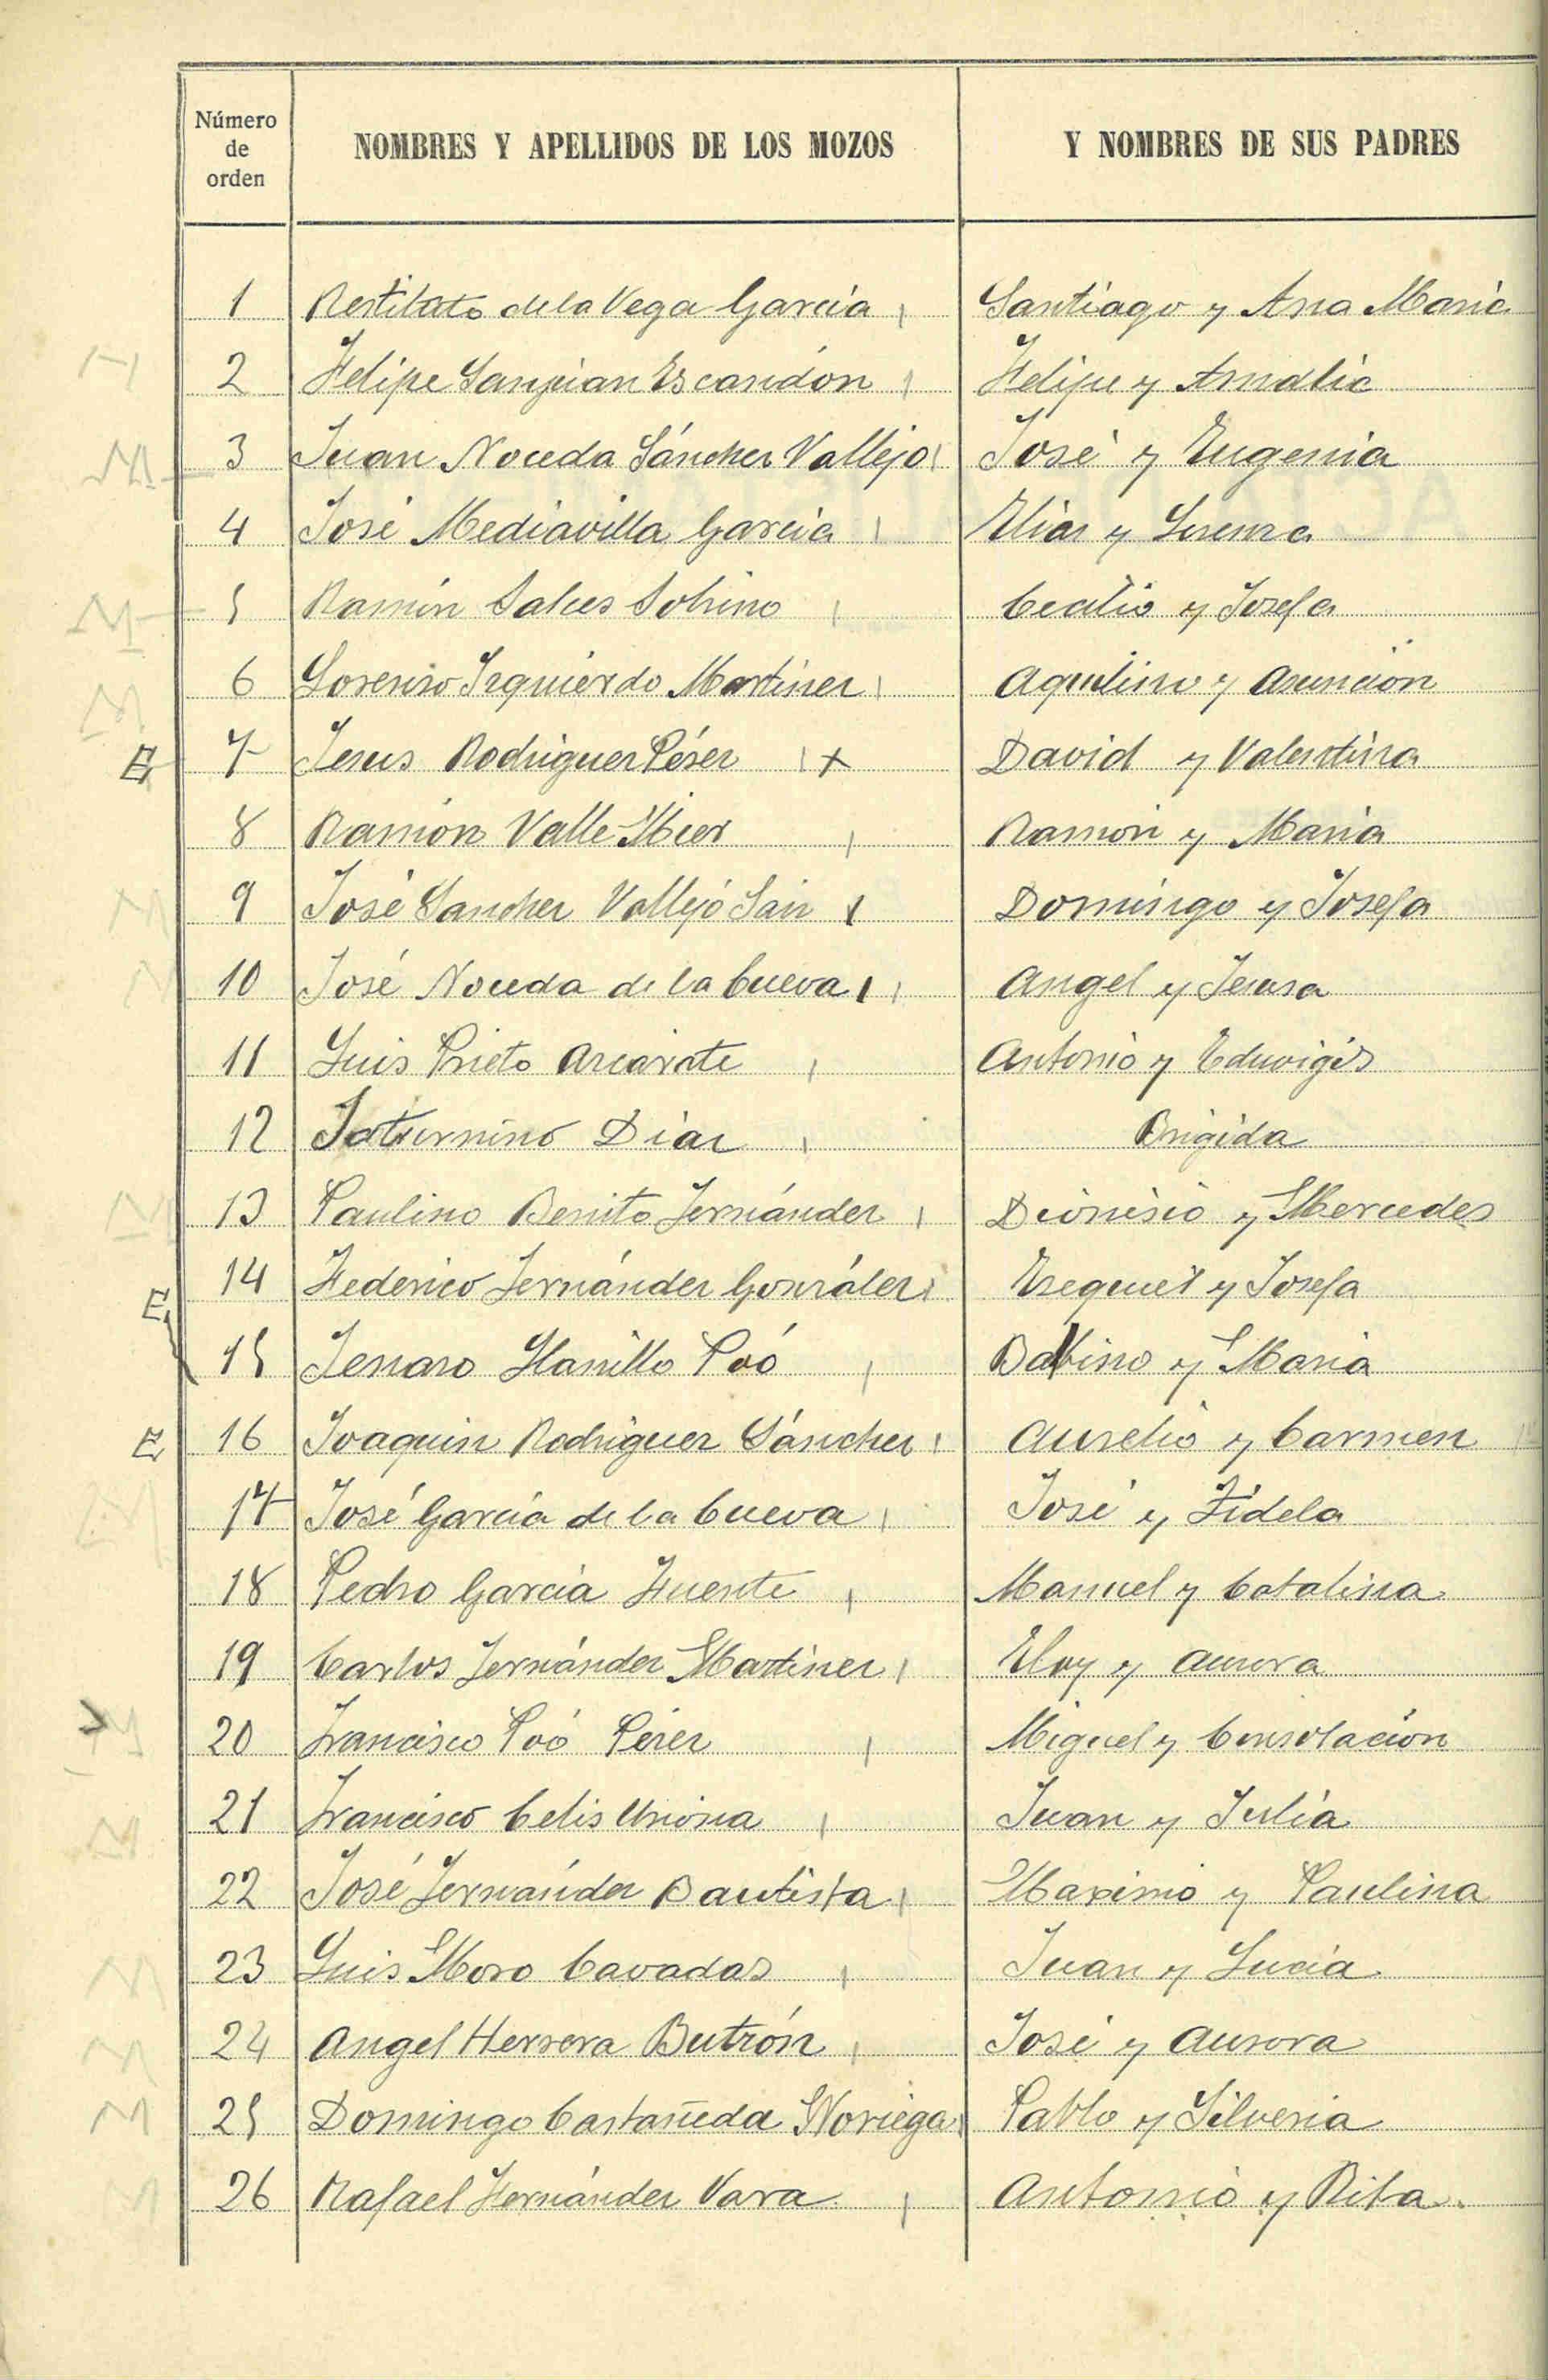 Número de orden
NOMBRES Y APELLIDOS DE LOS MOZOS
Y NOMBRES DE SUS PADRES
1 Restituto de la Vega García Santiago y Ana María
M 2 Felipe Sanjuan Escandón Felipe y Amalia
M 3 Juan Noceda Sánchez Vallejo José y Eugenia
4 José Mediavilla García Elias y Lorenza
M 5 Ramón Salces Sobrino Cecilio y Josefa
M 6 Lorenzo Izquierdo Martinez Aquilino y Asunción
E 7 Jesus Rodriguez Pérez x David y Valentina
8 Ramón Valle Mier Ramón y Maria
M 9 José Sanchez Vallejo Sáiz Domingo y Josefa
M 10 José Noceda de la Cueva Angel y Teresa
11 Luis Prieto Arcarate Antonio y Eduvigis
12 Saturnino Diaz Brigida
M 13 Paulino Benito Fernández Dionisio y Mercedes
E 14 Federico Fernández González Ezequiel y Josefa
15 Jenaro Llanillo Poó Balbino y Maria
E 16 Joaquin Rodriguez Sánchez Aurelio y Carmen
M 17 José García de la Cueva José y Fidela
18 Pedro García Fuente Manuel y Catalina
19 Carlos Fernández Martinez Eloy y Aurora
M 20 Francisco Poó Pérez Miguel y Consolación
M 21 Francisco Celis Juan y Julia
22 José Fernández Bautista Maximo y Paulina
M 23 Luis Moro Cavadas Juan y Lucia
M 24 Angel Herrera Butrón José y Aurora
M 25 Domingo Castañeda Noriega Pablo y Silveria
M 26 Rafael Fernández Vara Antonio y Rita